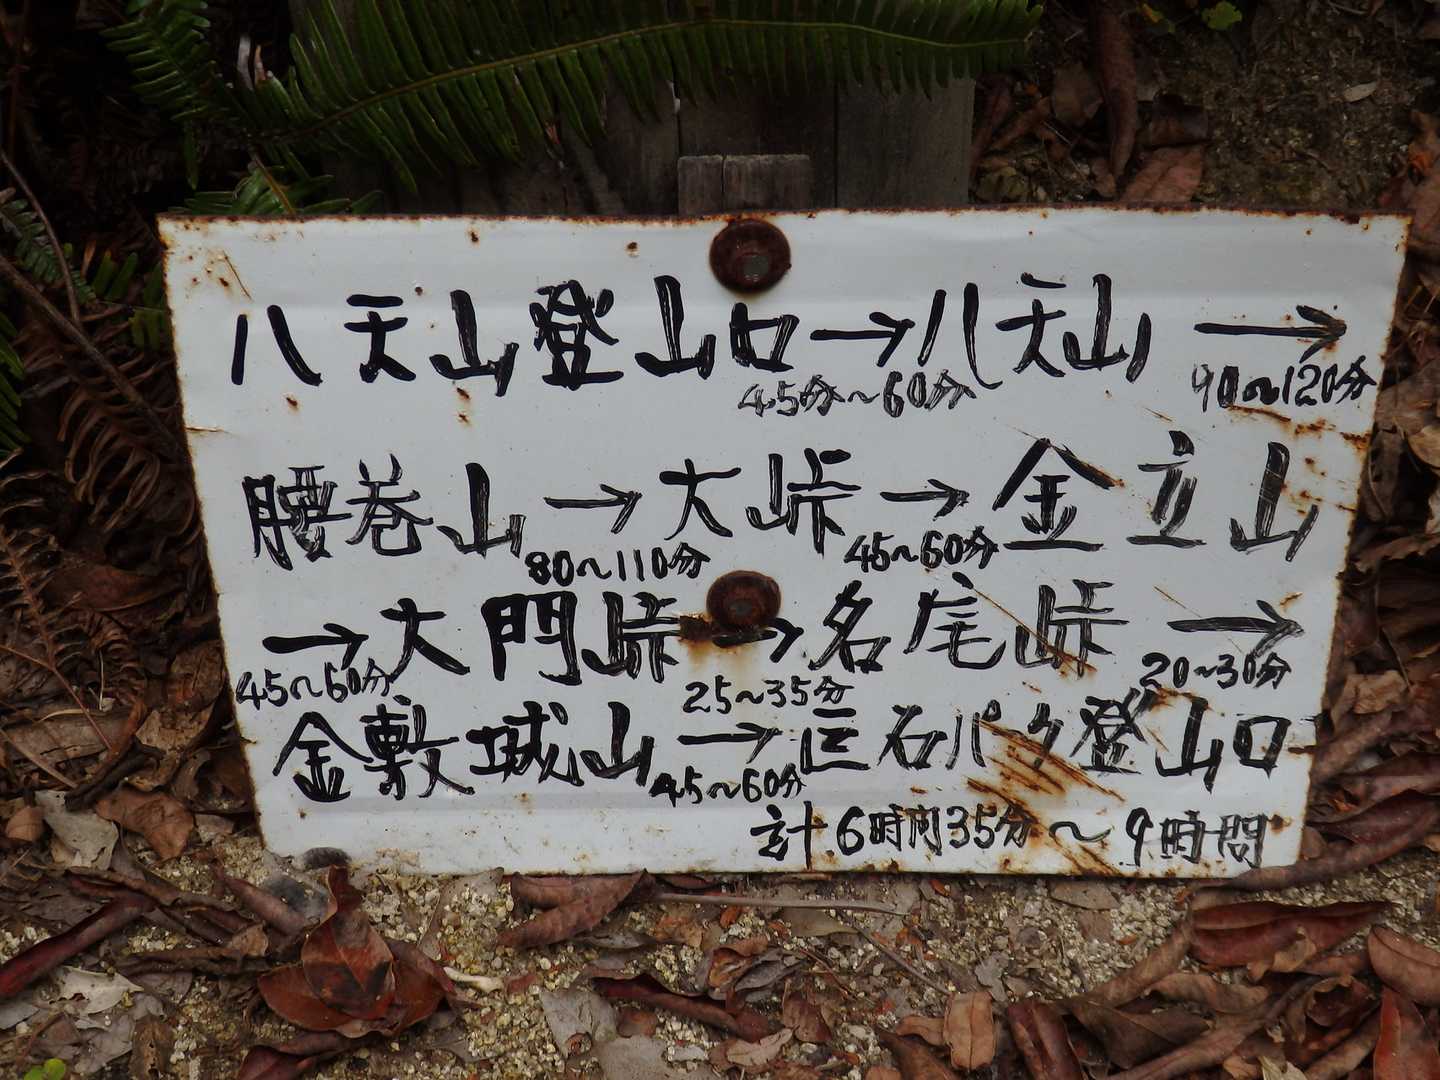 八天山登山口→八天山→
45分～60分 90～120分
腰巻山→大峠→金立山
80～110分 45～60分
→大門峠→名尾峠→
45～60分 25～35分 20～30分
金敷城山→巨石パーク登山口
45～60分
計6時間35分～9時間